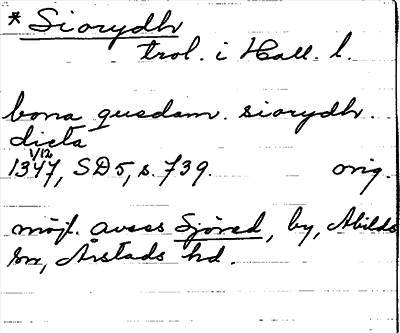 * Siorydh
trol. i Hall. l.
bona quedam. siorydh.
dicta
1/12
1347, SD5, s. 739. orig.
möjl. avses Sjöred, by, Abilds
sn, Årstads hd.